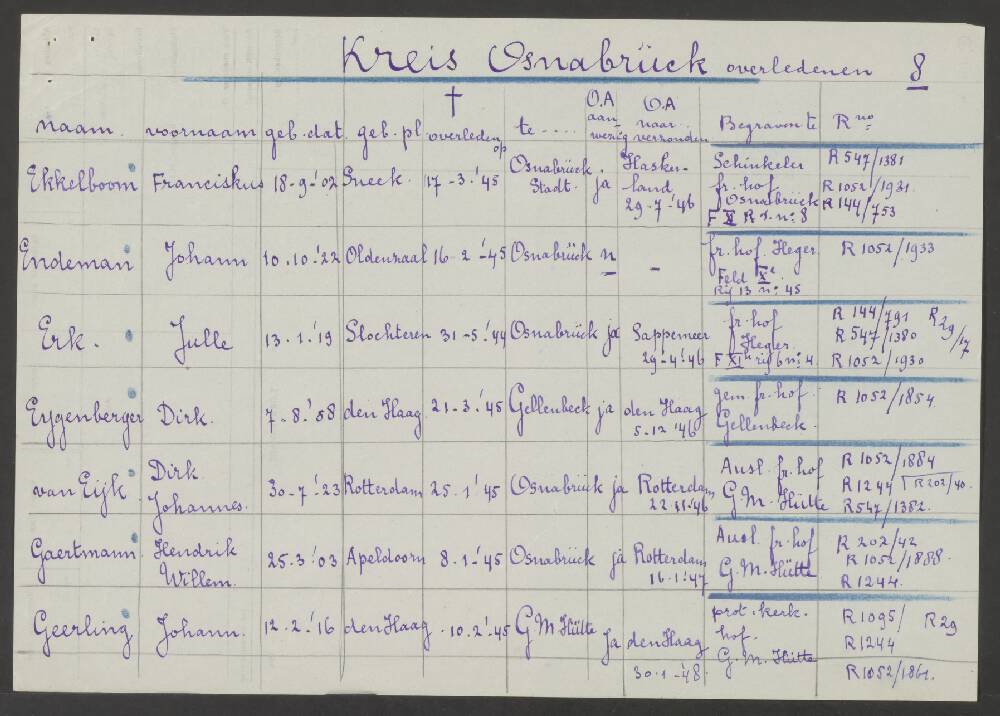 Kreis Osnabrück overledenen 8
naam. voornaam geb. dat. geb. pl. † overleden op te .... O.A aanwezig O.A naar verzonden Begraven te R no
Ekkelboom Franciskus 18-9-'02 Sneek. 17-3-'45 Osnabrück Stadt. ja Haskerland 29-7-'46 Schinkeler fr. hof Osnabrück F X R 1. n° 8 R 547/1381 R 1052/1931 R 144/753
Endeman Johann 10.10-'22 Oldenzaal 16-2-'45 Osnabrück n - fr. hof Heger. Feld Rij 13 n° 45 R 1052/1933
Erk. Julle 13.1.'19 Slochteren 31-5-'44 Osnabrück ja Sappemeer 29-4-'46 fr. hof Heger. F XI rij 6 n° 4. R 144/791 R 547/1380 R 1052/1930 R 29/17
Eygenberger Dirk. 7-8-'88 den Haag 21-3-'45 Gellenbeck ja den Haag 5-12-'46 gem. fr. hof. Gellenbeck. R 1052/1854
van Eijk Dirk Johannes. 30-7-'23 Rotterdam 25.1-'45 Osnabrück ja Rotterdam 22-11-'46 Ausl. fr. hof G.M. Hütte R 1052/1884 R 1244 R 202/40. R 547/1382.
Gaertmann Hendrik Willem. 25-3-'03 Apeldoorn 8-1-'45 Osnabrück ja Rotterdam 16-1-'47 Ausl. fr. hof G.M. Hütte R 202/42 R 1052/1888 R 1244.
Geerling Johann. 12-2-'16 den Haag. 10.2-'45 G M Hütte ja den Haag 30-1-48. prot. kerk. hof. G.M. Hütte R 1095/ R 29 R 1244 R 1052/1861.